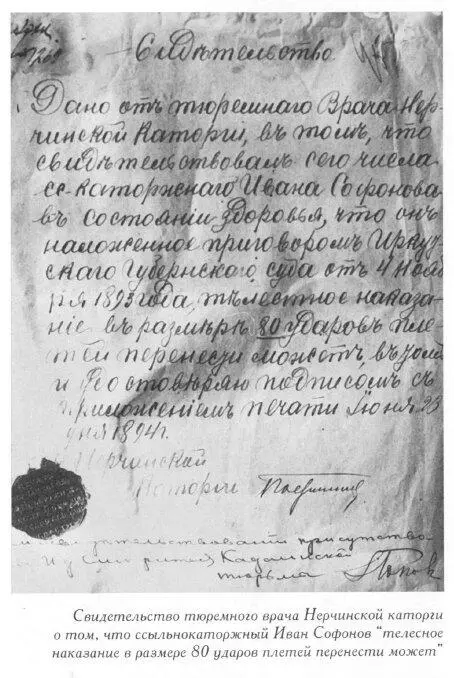 Свидѣтельство.
Дано отъ тюремнаго Врача Нер-
чинской Каторги, въ томъ, что
свидѣтельствовалъ сего числа
сс-каторжнаго Ивана Софонова
въ состояніи здоровья, что онъ
наложенное приговоромъ Ирку[т]-
скаго Губернскаго суда отъ 4 Нояб-
ря 1893 года, тѣлестное наказа-
ніе въ размѣрѣ 80 ударовъ пле-
тей перенести можетъ, въ чемъ
и удостовѣряю подписомъ съ
приложеніемъ печати Іюня 23
дня 1894 г.
Нерчинской
Каторги
присутство
Кадаинской
тюрьмы Поповъ
Свидетельство тюремного врача Нерчинской каторги
о том, что ссыльнокаторжный Иван Софонов "телесное
наказание в размере 80 ударов плетей перенести может"